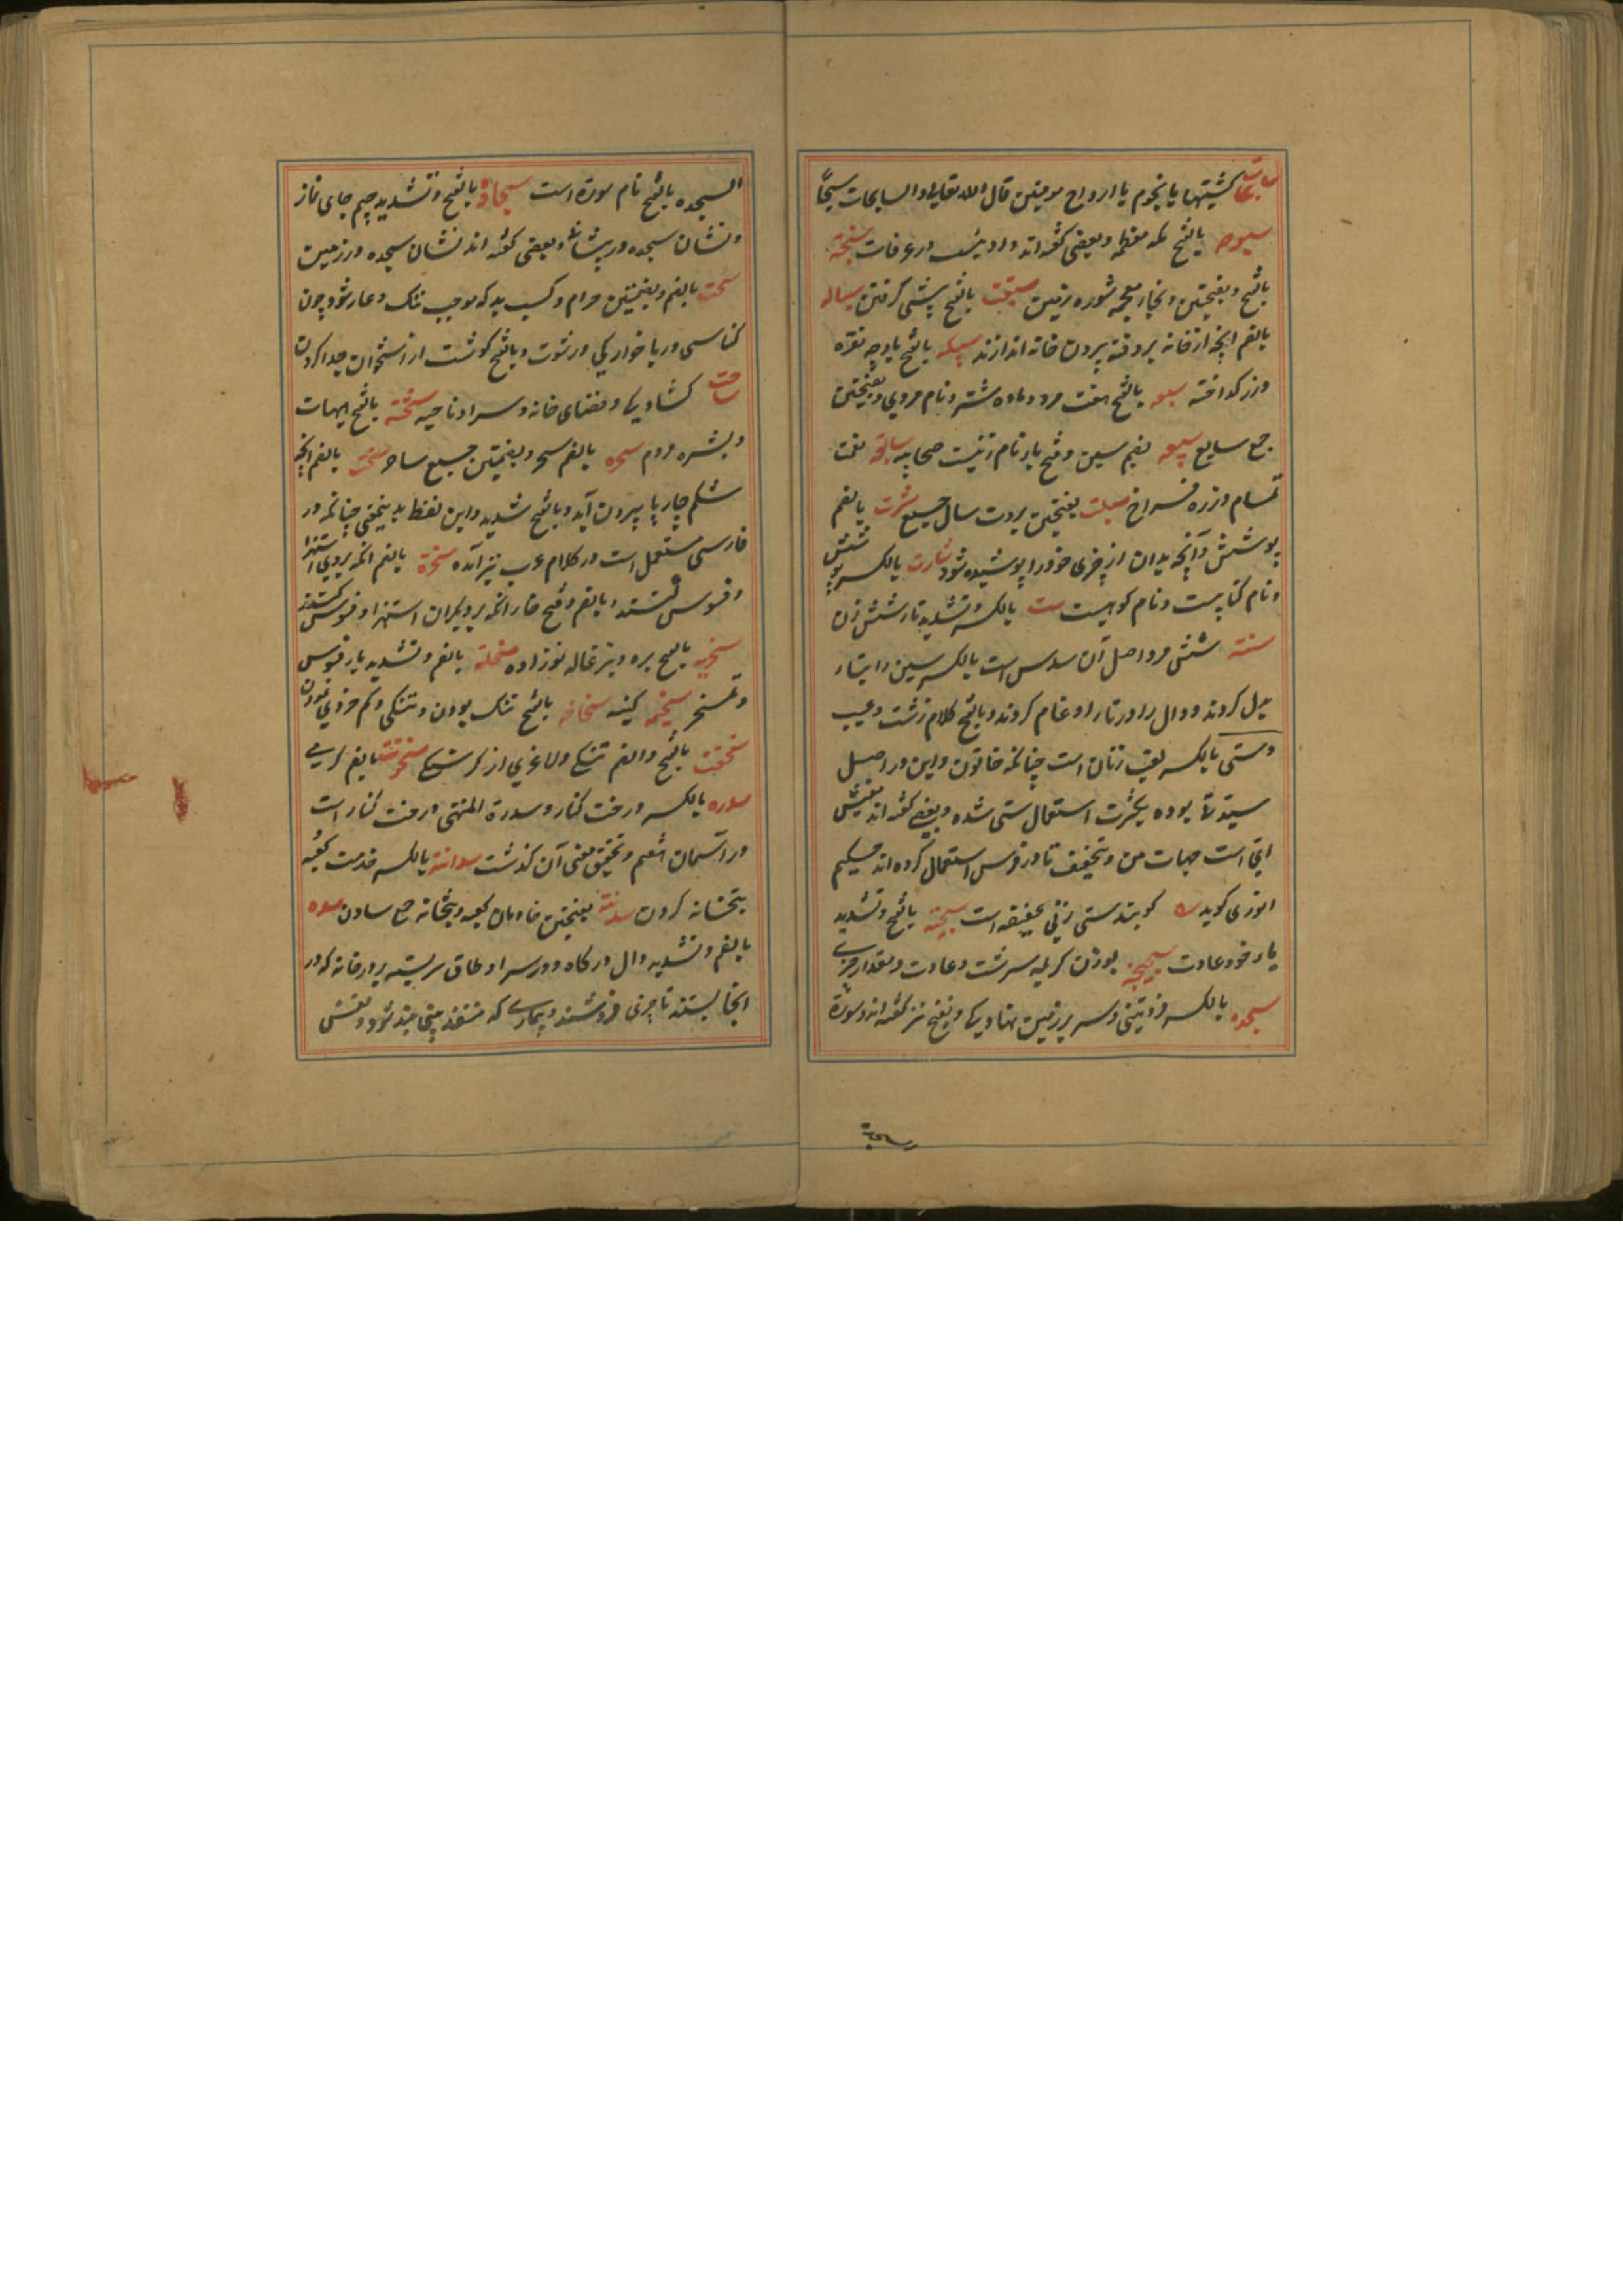 سابحات کشتیها یا نجوم یا ارواح مومنین قال الله تعالی والسابحات سبحًا
سبوحه بالفتح مکه معظمه وبعضی گفته اند وادیست در عرفات سبخة
بالفتح وبفتحتین وبخاء معجمه شوره زمین سبقت بالفتح پیشی گرفتن سباله
بالضم آنچه از خانه بروفته بیرون خانه اندازند سبیکه بالفتح پارچه نقره
وزر گداخته سبعه بالفتح هفت مرد وماده شتر ونام مردی وبفتحتین
جمع سابع سبیعه بضم سین وفتح با نام زنیست صحابیه سابغه نعت
تمام وزره فراخ سبلت بفتحتین بروت سبال جمع سترت بالضم
پوشش وآنچه بدان از چیزی خود را پوشیده شود ستارت بالکسر پوشش
ونام کتابیست ونام کوهیست ست بالکسر وتشدید تا شش زن
ستة شش مرد واصل آن سدس است بالکسر سین را بتاء
بدل کردند ودال را در تا ادغام کردند وبالفتح کلام زشت وعیب
وستی بالکسر لقب زنان است چنانکه خاتون واین در اصل
سیدتی بوده بکثرت استعمال ستی شده وبعضی گفته اند معنیش
ای است جهات من وبتخفیف تا در فرس استعمال کرده اند حکیم
انوری گوید گویند ستی زنی عفیفه است سجیة بالفتح وتشدید
یا خو وعادت سجیحة بوزن کریمه سرشت وعادت ومقدار چیزی
سجده بالکسر فروتنی وسر بر زمین نهادن وبفتح نیز گفته اند وسورة
السجده بالفتح نام سوره است سجاده بالفتح وتشدید جیم جای نماز
ونشان سجده در پیشانی وبعضی گفته اند نشان سجده در زمین
سحت بالضم وبضمتین حرام وکسب بد که موجب ننگ وعار شود چون
کناسی وربا خواری ورشوت وبالفتح گوشت از استخوان جدا کردن
ساحت کشادگی وفضای خانه وسرا وناحیه سحنة بالفتح هیأت
وبشره مردم سحره بالضم سحر وبفتحتین جمع ساحر سخت بالضم آنچه
شکم چارپا بیرون آید وبالفتح شدید واین لفظ بدینمعنی چنانکه در
فارسی مستعمل است در کلام عرب نیز آمده سخرة بالضم آنکه بروی استهزا
وفسوس کنند وبالضم وفتح خا آنکه بر دیگران استهزا وفسوس کند
سخله بالفتح بره وبزغاله نوزاده بالضم وتشدید یا فسوس
وتمسخر سخیمه کینه سخافه بالفتح تنک بودن وتنکی وکم خردی نمودن
سخفت بالفتح والضم تنکی ولاغری از گرسنگی سخونت بالضم گرمی
سدره بالکسر درخت کنار وسدرة المنتهی درخت کنار است
در آسمان هفتم وتحقیق معنی آن گذشت سدانة بالکسر خدمت کعبه
بتخانه کردن سدنة بفتحتین خادمان کعبه وبتخانه جمع سادن سده
بالضم وتشدید دال درگاه ودر سرا وطاق سربسته بر در خانه که در
آنجا نشینند تا چیزی فروشند وبیماری که منفذ بینی بند شود ونفس